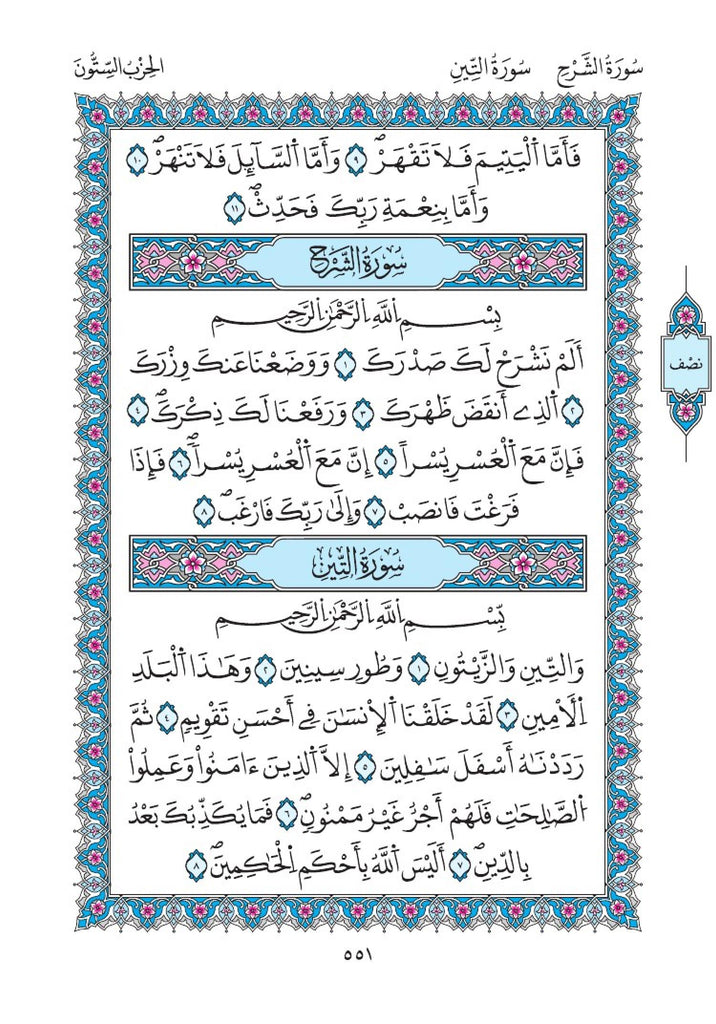 سُورَةُ الشَّرْحِ سُورَةُ التِّينِ الحِزْبُ السِّتُّونَ
فَأَمَّا اَ۬لْيَتِيمَ فَلَا تَقْهَرْۖ ٩ وَأَمَّا اَ۬لسَّآئِلَ فَلَا تَنْهَرْۖ ١٠
وَأَمَّا بِنِعْمَةِ رَبِّكَ فَحَدِّثْۖ ١١
سُورَةُ الشَّرْحِ
بِسْمِ اِ۬للَّهِ اِ۬لرَّحْمَٰنِ اِ۬لرَّحِيمِ
أَلَمْ نَشْرَحْ لَكَ صَدْرَكَ ١ وَوَضَعْنَا عَنكَ وِزْرَكَ
٢ اَ۬لذِےٓ أَنقَضَ ظَهْرَكَ ٣ وَرَفَعْنَا لَكَ ذِكْرَكَۖ ٤
فَإِنَّ مَعَ اَ۬لْعُسْرِ يُسْراً ٥ إِنَّ مَعَ اَ۬لْعُسْرِ يُسْراۖ ٦ فَإِذَا
فَرَغْتَ فَانصَبْ ٧ وَإِلَىٰ رَبِّكَ فَارْغَبۖ ٨
سُورَةُ التِّينِ
بِسْمِ اِ۬للَّهِ اِ۬لرَّحْمَٰنِ اِ۬لرَّحِيمِ
وَالتِّينِ وَالزَّيْتُونِ ١ وَطُورِ سِينِينَ ٢ وَهَٰذَا اَ۬لْبَلَدِ
اِ۬لَامِينِ ٣ لَقَدْ خَلَقْنَا اَ۬لِانسَٰنَ فِےٓ أَحْسَنِ تَقْوِيمٖ ٤ ثُمَّ
رَدَدْنَٰهُ أَسْفَلَ سَٰفِلِينَ ٥ إِلَّا اَ۬لذِينَ ءَامَنُواْ وَعَمِلُواْ
اُ۬لصَّٰلِحَٰتِ فَلَهُمُۥٓ أَجْرٌ غَيْرُ مَمْنُونٖۖ ٦ فَمَا يُكَذِّبُكَ بَعْدُ
بِالدِّينِۖ ٧ أَلَيْسَ اَ۬للَّهُ بِأَحْكَمِ اِ۬لْحَٰكِمِينَۖ ٨
نصْف
٥٥١